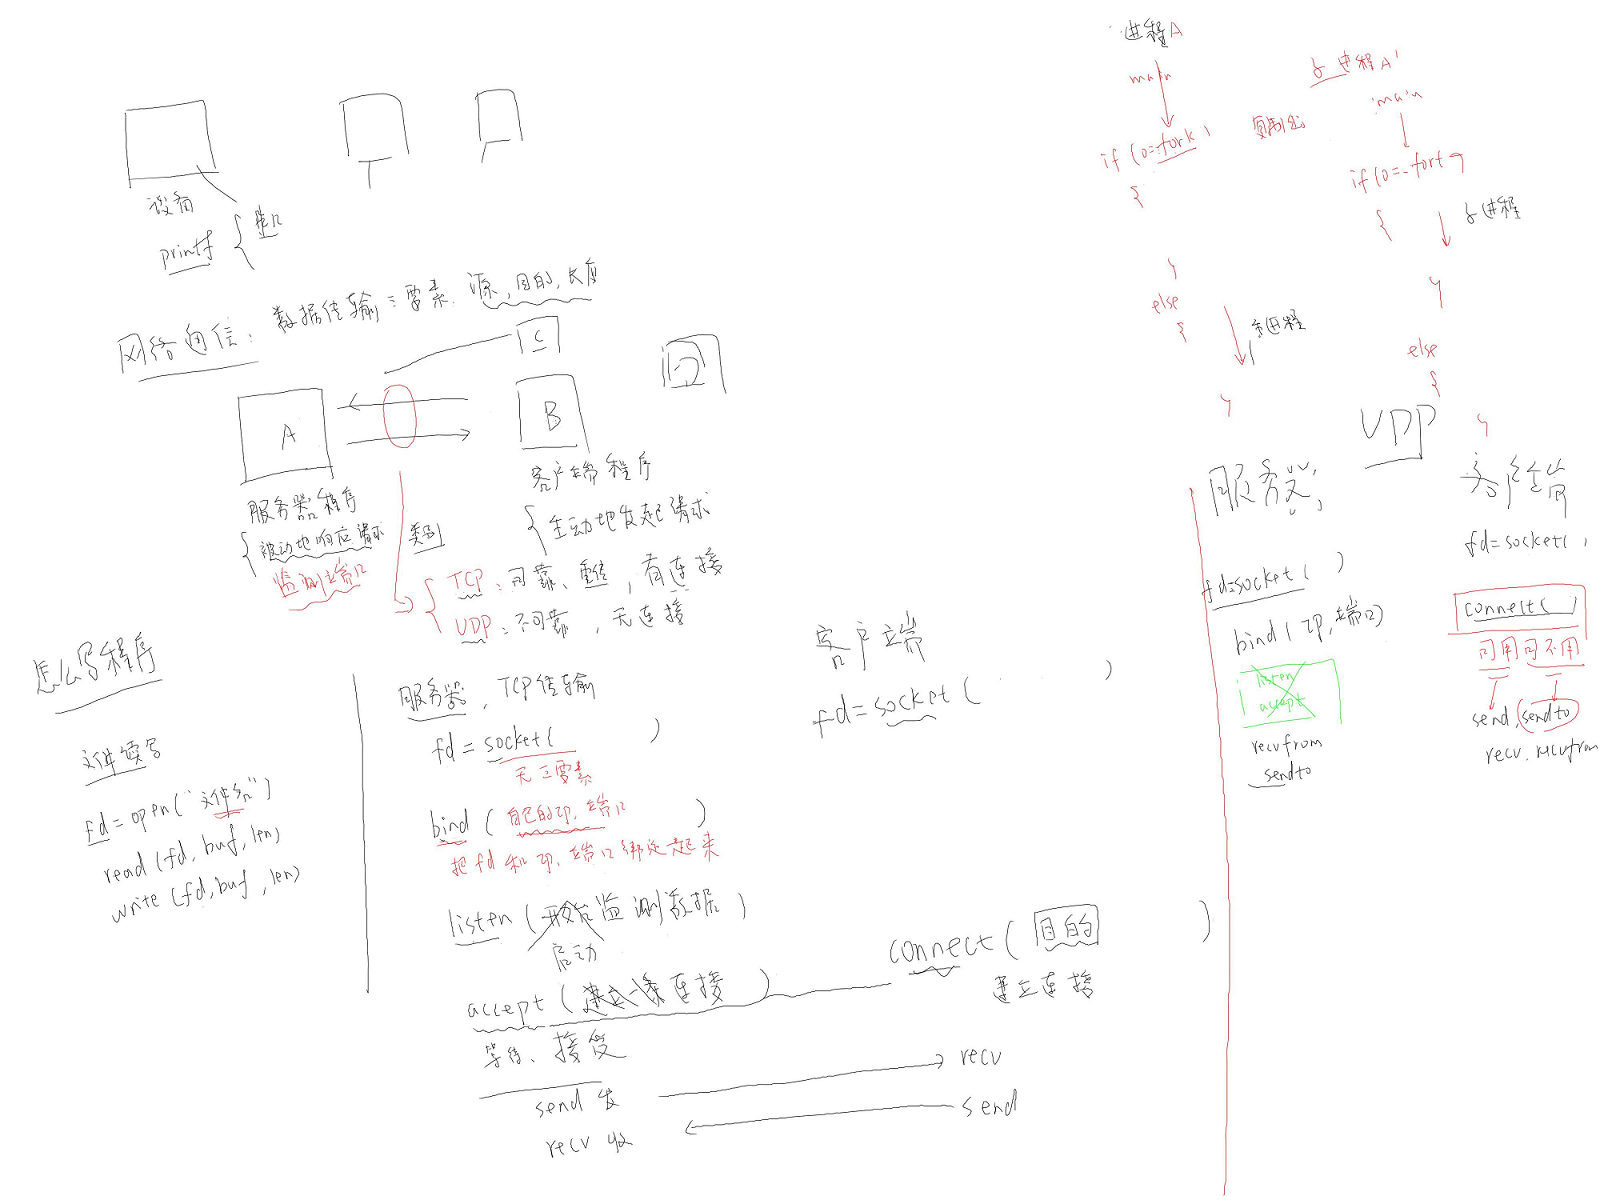 设备
printf
串口
网络通信: 数据传输三要素: 源, 目的, 长度
C
A
B
服务器程序
被动地响应请求
监测端口
客户端程序
主动地发起请求
类别
TCP: 可靠、重传, 有连接
UDP: 不可靠, 无连接
怎么写程序
文件读写
fd=open("文件名")
read(fd, buf, len)
write(fd, buf, len)
服务器, TCP传输
fd=socket( )
无三要素
bind(自己的IP, 端口 )
把fd和IP, 端口绑定起来
listen(开始监测数据)
启动
accept(建立一条连接 )
等待、接受
send 发
recv 收
客户端
fd=socket( )
connect(目的 )
建立连接
recv
send
进程A
main
if(0==fork)
{
}
else
{
父进程
}
复制出
子进程A'
main
if(0==fork)
{
子进程
}
else
{
}
UDP
服务器
fd=socket( )
bind(IP, 端口)
listen
accept
recvfrom
sendto
客户端
fd=socket(
connect( )
可用可不用
send, sendto
recv, recvfrom